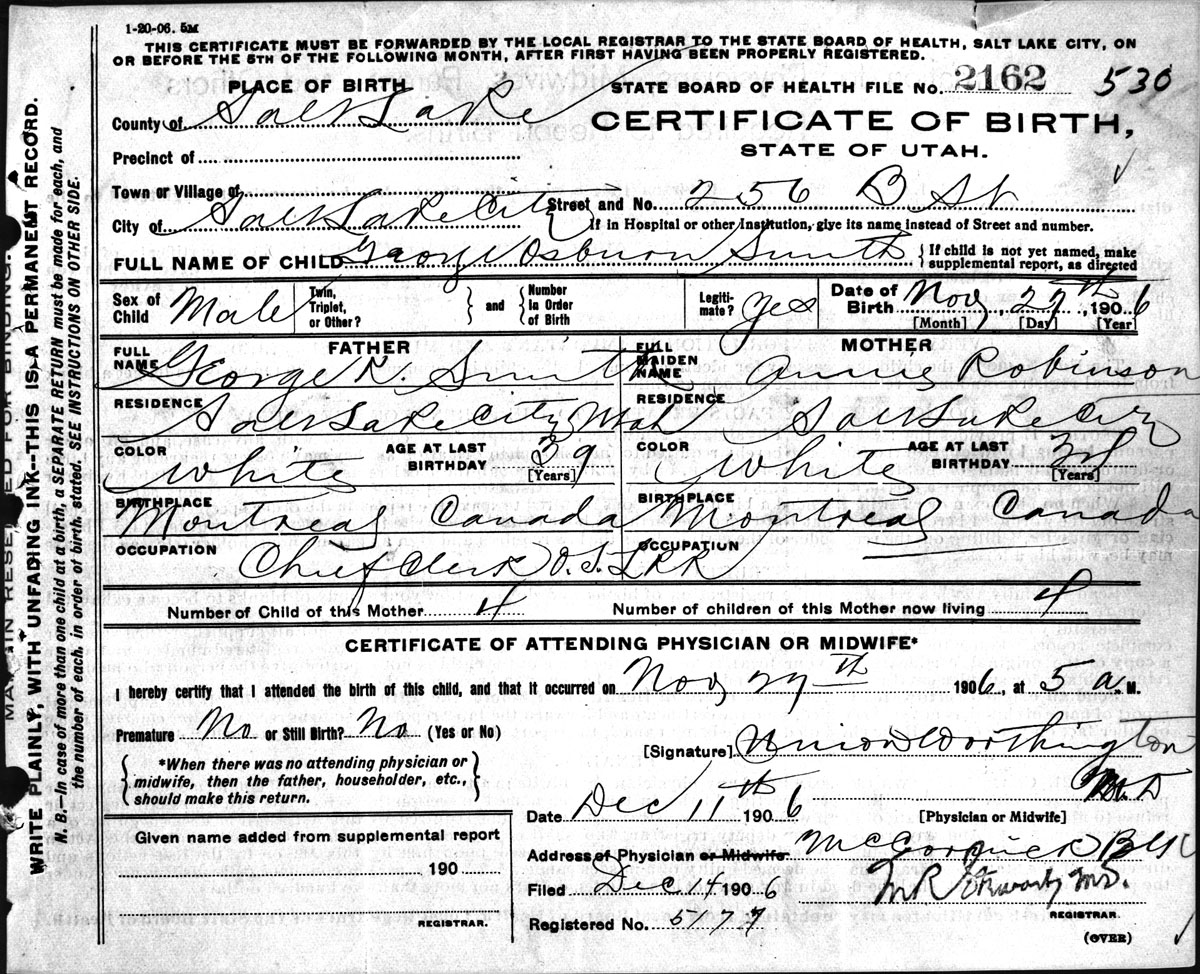 1-20-06. 5M
THIS CERTIFICATE MUST BE FORWARDED BY THE LOCAL REGISTRAR TO THE STATE BOARD OF HEALTH, SALT LAKE CITY, ON
OR BEFORE THE 5TH OF THE FOLLOWING MONTH, AFTER FIRST HAVING BEEN PROPERLY REGISTERED.
PLACE OF BIRTH
STATE BOARD OF HEALTH FILE NO. 2162 530
County of Salt Lake
CERTIFICATE OF BIRTH,
STATE OF UTAH.
Precinct of
Town or Village of
Street and No. 256 B St
City of Salt Lake City
If in Hospital or other Institution, give its name instead of Street and number.
FULL NAME OF CHILD George Osburn Smith
If child is not yet named, make
supplemental report, as directed
Sex of Child Male
Twin, Triplet, or Other?
and
Number in Order of Birth
Legitimate? yes
Date of Birth Nov, 27th, 1906
[Month] [Day] [Year]
FATHER
FULL NAME George N. Smith
MOTHER
FULL MAIDEN NAME Annie Robinson
RESIDENCE Salt Lake City Utah
RESIDENCE Salt Lake City
COLOR White
AGE AT LAST BIRTHDAY 39 [Years]
COLOR White
AGE AT LAST BIRTHDAY [Years]
BIRTHPLACE Montreal Canada
BIRTHPLACE Montreal Canada
OCCUPATION Chief Clerk O.S.L.RR
OCCUPATION
Number of Child of this Mother 4
Number of children of this Mother now living 4
CERTIFICATE OF ATTENDING PHYSICIAN OR MIDWIFE*
I hereby certify that I attended the birth of this child, and that it occurred on Nov 27th 1906, at 5 a. M.
Premature No or Still Birth? No (Yes or No)
[Signature] Union Worthington
M.D
*When there was no attending physician or
midwife, then the father, householder, etc.,
should make this return.
Date Dec 11th 1906
[Physician or Midwife]
Given name added from supplemental report
190
REGISTRAR.
Address of Physician or Midwife McCornick Bldg
Filed Dec 14 1906
M R Stewart, M.D.
REGISTRAR.
Registered No. 5177
(OVER)
MARGIN RESERVED FOR BINDING.
WRITE PLAINLY, WITH UNFADING INK—THIS IS A PERMANENT RECORD.
N. B.—In case of more than one child at a birth, a SEPARATE RETURN must be made for each, and
the number of each, in order of birth stated. SEE INSTRUCTIONS ON OTHER SIDE.